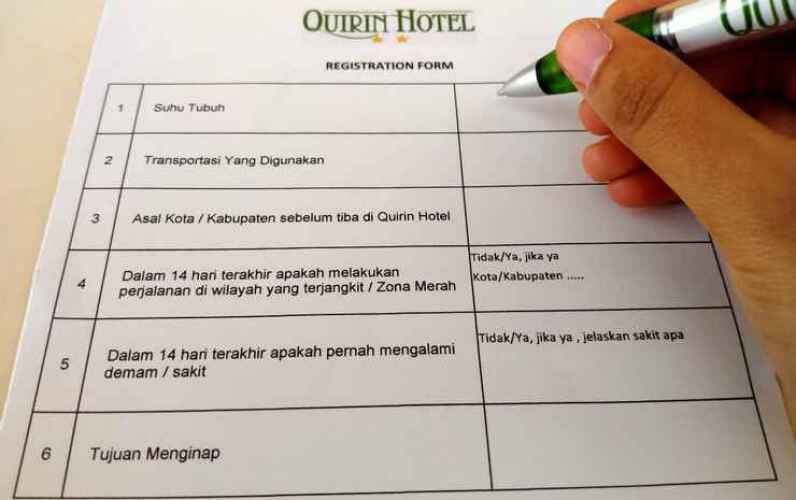 QUIRIN HOTEL
REGISTRATION FORM
1 Suhu Tubuh
2 Transportasi Yang Digunakan
3 Asal Kota / Kabupaten sebelum tiba di Quirin Hotel
4 Dalam 14 hari terakhir apakah melakukan
perjalanan di wilayah yang terjangkit / Zona Merah
Tidak/Ya, jika ya
Kota/Kabupaten .....
5 Dalam 14 hari terakhir apakah pernah mengalami
demam / sakit
Tidak/Ya, jika ya , jelaskan sakit apa
6 Tujuan Menginap